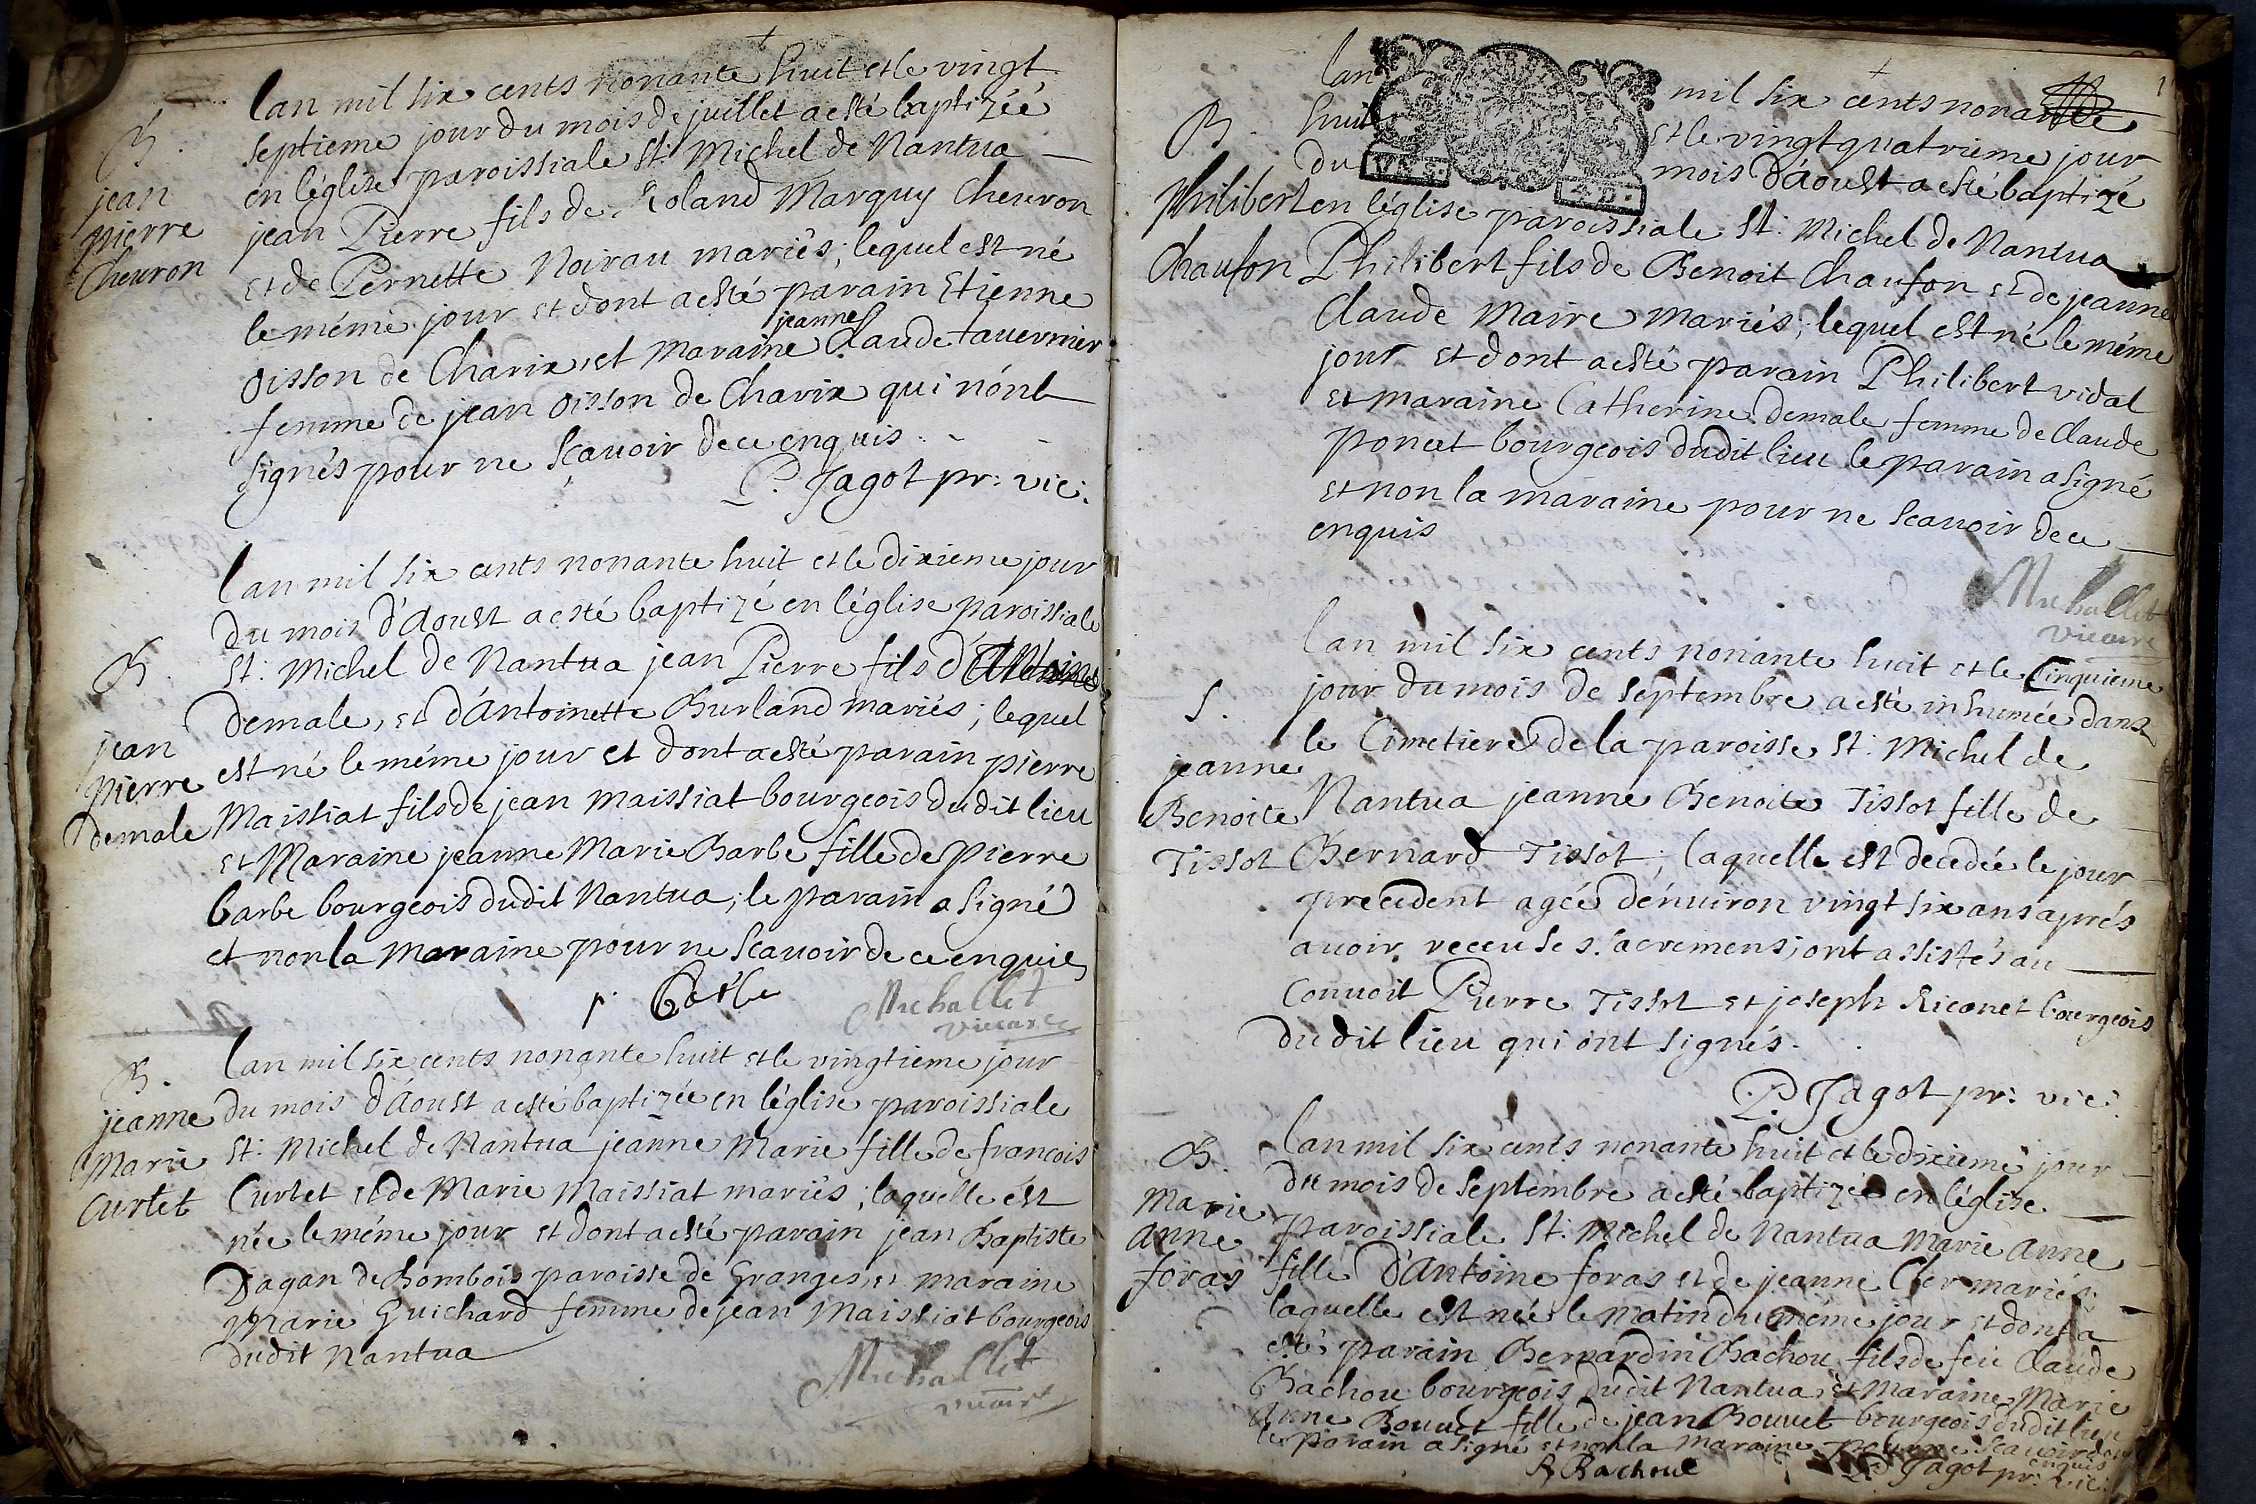 B.
jean
pierre
Cheuron
lan mil six cents nonante huit et le vingt
septieme jour du mois de juillet a esté baptizéé
en léglise paroissiale st: Michel de Nantua
jean Pierre fils de Roland Marquy Cheuron
et de Pernette Noirau mariés; lequel est né
le méme jour et dont a esté parain Etienne
jeanne
oisson de Charix, et maraine Claude tauernier
femme de jean oisson de Charix qui nónt
signés pour ne scauoir de ce enquis.
P. Jagot pr: vic:
B.
jean
pierre
demale
lan mil six cents nonante huit et le dixieme jour
du mois d'Aoust a esté baptizé en léglise paroissiale
st: Michel de Nantua jean Pierre fils d'Antoine
demale, et d'Antoinette Burland mariés; lequel
est né le méme jour et dont a esté parain pierre
Maissiat fils de jean maissiat bourgeois dudit lieu
et Maraine jeanne Marie Barbe fille de pierre
barbe bourgeois dudit Nantua; le parain a signé
et non la maraine pour ne scauoir de ce enquis
Michallet
vicaire
B.
jeanne
Marie
Curtet
lan mil six cents nonante huit et le vingtieme jour
du mois d'Aoust a esté baptizée en léglise paroissiale
st: Michel de Nantua jeanne Marie fille de francois
Curtet et de Marie Maissiat mariés; laquelle ést
née le méme jour et dont a esté parain jean Baptiste
Dagan de Bombois paroisse de Granges, et maraine
Marie Guichard femme de jean Maissiat bourgeois
dudit Nantua
Michallet
vicaire
B.
Philibert
Chaufon
lan mil six cents nonante
huit et le vingt quatrieme jour
du mois d'Aoust a esté baptizé
en léglise paroissiale st: Michel de Nantua
Philibert fils de Benoit Chaufon et de jeanne
Claude Maire mariés; lequel est né le méme
jour et dont a esté parain Philibert vidal
et maraine Catherine demale femme de Claude
poncet bourgeois dudit lieu le parain a signé
et non la maraine pour ne scauoir de ce
enquis
Michallet
vicaire
S.
jeanne
Benoite
Tissot
lan mil six cents nonante huit et le Cinquieme
jour du mois de septembre a esté inhumée dans
le Cimetiere de la paroisse st: Michel de
Nantua jeanne Benoite Tissot fille de
Bernard Tissot; laquelle est decedée le jour
precedent agée d'énuiron vingt six ans aprés
auoir receu les s. sacremens; ont assistés au
Conuoit Pierre Tissot et joseph Riconet bourgeois
dudit lieu qui ónt signés.
P. Jagot pr: vic:
B.
Marie
anne
foras
lan mil six cents nonante huit et le dixieme jour
du mois de septembre a esté baptizée en léglise
paroissiale st: Michel de Nantua Marie anne
fille d'Antoine foras et de jeanne Cler mariés;
laquelle est née le matin du méme jour et dont a
esté parain Bernardin Bachou fils de feu Claude
Bachou bourgeois dudit Nantua, et maraine Marie
Anne Bouuet fille de jean Bouuet bourgeois dudit lieu
le parain a signé et non la maraine pour ne scauoir de ce
enquis
B Bachoud
P. Jagot pr: vic: